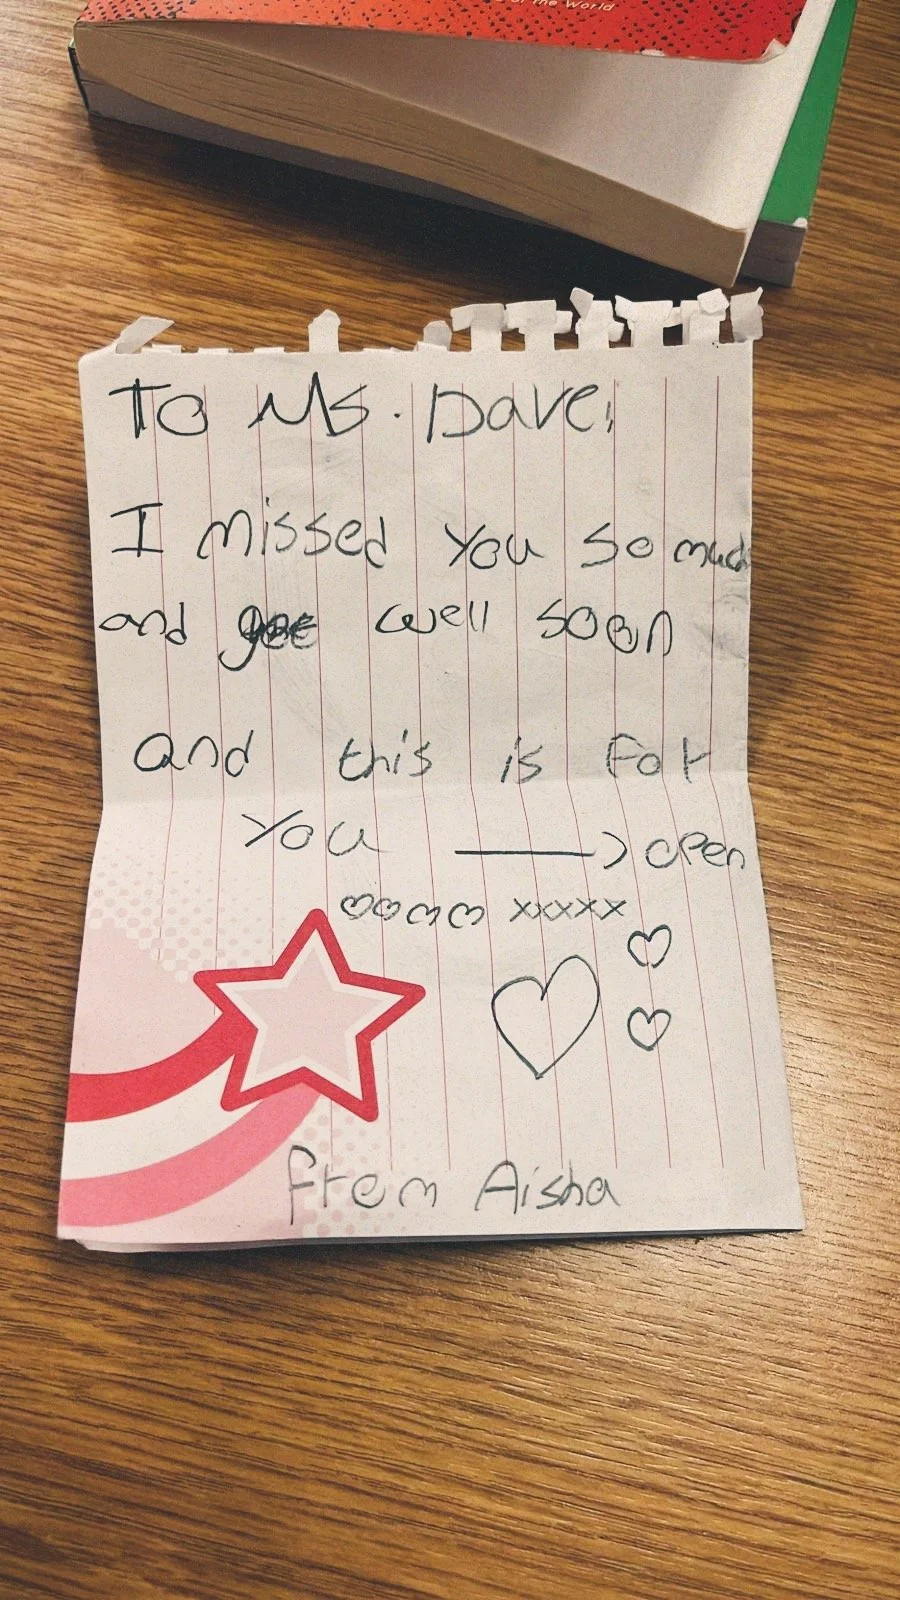 of the World
To Ms. Dave,
I missed you so much
and get well soon
and this is for
you → open
♡♡♡♡ xxxxx
from Aisha